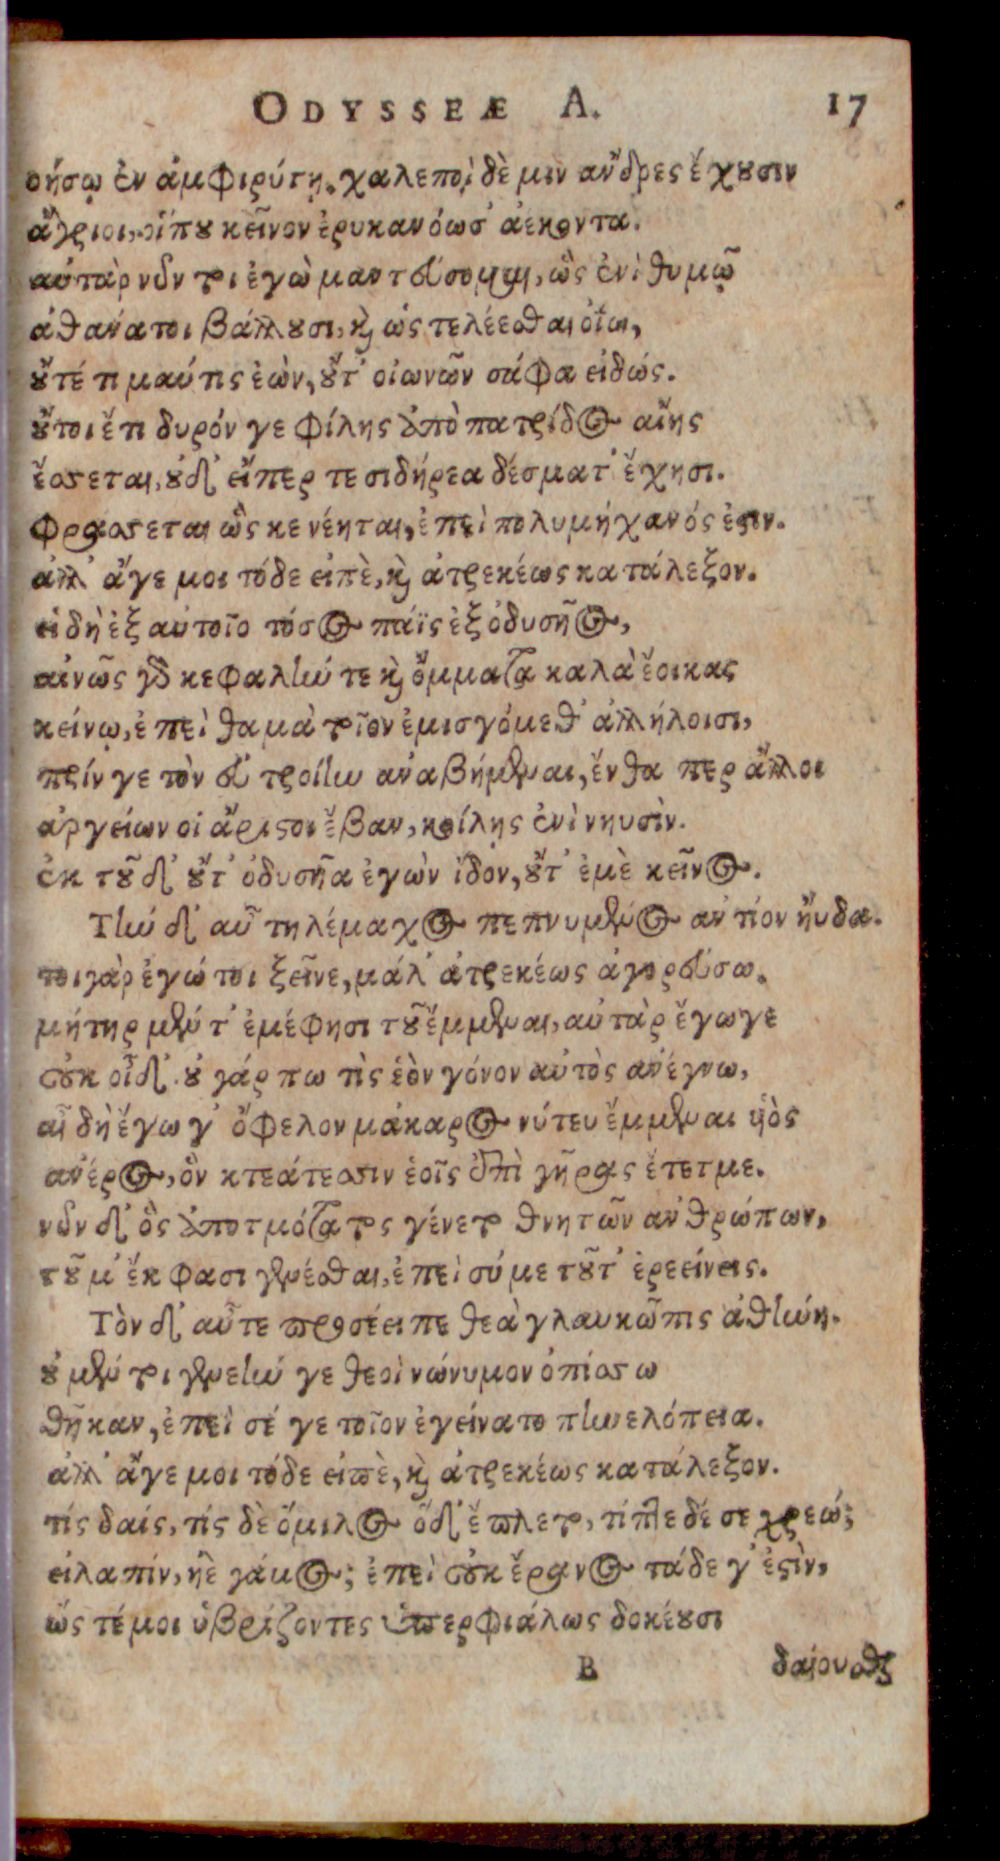 ODYSSEÆ A. 17
νήσῳ ἐν ἀμφιρύτῃ. χαλεποὶ δὲ μιν ἄνδρες ἔχουσιν
ἄγριοι, οἵ που κεῖνον ἐρυκανόωσ' ἀέκοντα.
αὐτὰρ νῦν τοι ἐγὼ μαντεύσομαι, ὣς ἐνὶ θυμῷ
ἀθάνατοι βάλλουσι, καὶ ὡς τελέεσθαι οἴω,
οὔτέ τι μαύτις ἐὼν, οὔτ' οἰωνῶν σάφα εἰδώς.
οὔτοι ἔτι δυρόν γε φίλης ἀπὸ πατρίδος αἴης
ἔσσεται, οὐδ' εἴπερ τε σιδήρεα δέσματ' ἔχησι.
φράσσεται ὥς κε νέηται, ἐπεὶ πολυμήχανός ἐστιν.
ἀλλ' ἄγε μοι τόδε εἰπὲ, καὶ ἀτρεκέως κατάλεξον.
εἰ δὴ ἐξ αὐτοῖο τόσος πάϊς ἐξ ὀδυσῆος,
αἰνῶς γὰρ κεφαλήν τε καὶ ὄμματα καλὰ ἔοικας
κείνῳ, ἐπεὶ θαμὰ τοῖον ἐμισγόμεθ' ἀλλήλοισι,
πρίν γε τὸν εὐ τροίην ἀναβήμεναι, ἔνθα περ ἄλλοι
ἀργείων οἱ ἄριστοι ἔβαν, κοίλῃς ἐνὶ νηυσὶν.
ἐκ τοῦ δ' οὔτ' ὀδυσῆα ἐγὼν ἴδον, οὔτ' ἐμὲ κεῖνος.
Τὴν δ' αὖ τηλέμαχος πεπνυμένος ἀντίον ηὔδα.
τοιγὰρ ἐγώ τοι ξεῖνε, μάλ' ἀτρεκέως ἀγορεύσω.
μήτηρ μέν τ' ἐμέ φησι τοῦ ἔμμεναι, αὐτὰρ ἔγωγε
οὐκ οἶδ'. οὐ γάρ πω τὶς ἑὸν γόνον αὐτὸς ἀνέγνω,
αἲ δὴ ἔγωγ' ὄφελον μάκαρος νύ τευ ἔμμεναι υἱὸς
ἀνέρος, ὃν κτεάτεσσιν ἑοῖς ἐπὶ γῆρας ἔτετμε.
νῦν δ' ὃς ἀποτμότατος γένετο θνητῶν ἀνθρώπων,
τοῦ μ' ἔκ φασι γενέσθαι, ἐπεὶ σύ με τοῦτ' ἐρεείνεις.
Τὸν δ' αὖτε προσέειπε θεὰ γλαυκῶπις ἀθήνη.
οὐ μέν τοι γενεήν γε θεοὶ νώνυμον ὀπίσσω
θῆκαν, ἐπεὶ σέ γε τοῖον ἐγείνατο πηνελόπεια.
ἀλλ' ἄγε μοι τόδε εἰπὲ, καὶ ἀτρεκέως κατάλεξον.
τίς δαίς, τίς δὲ ὅμιλος ὅδ' ἔπλετο, τίπτε δέ σε χρεώ;
εἰλαπίν, ἠὲ γάμος; ἐπεὶ οὐκ ἔρανος τάδε γ' ἐστὶν,
ὥς τέ μοι ὑβρίζοντες ὑπερφιάλως δοκέουσι
B δαίνυσθαι